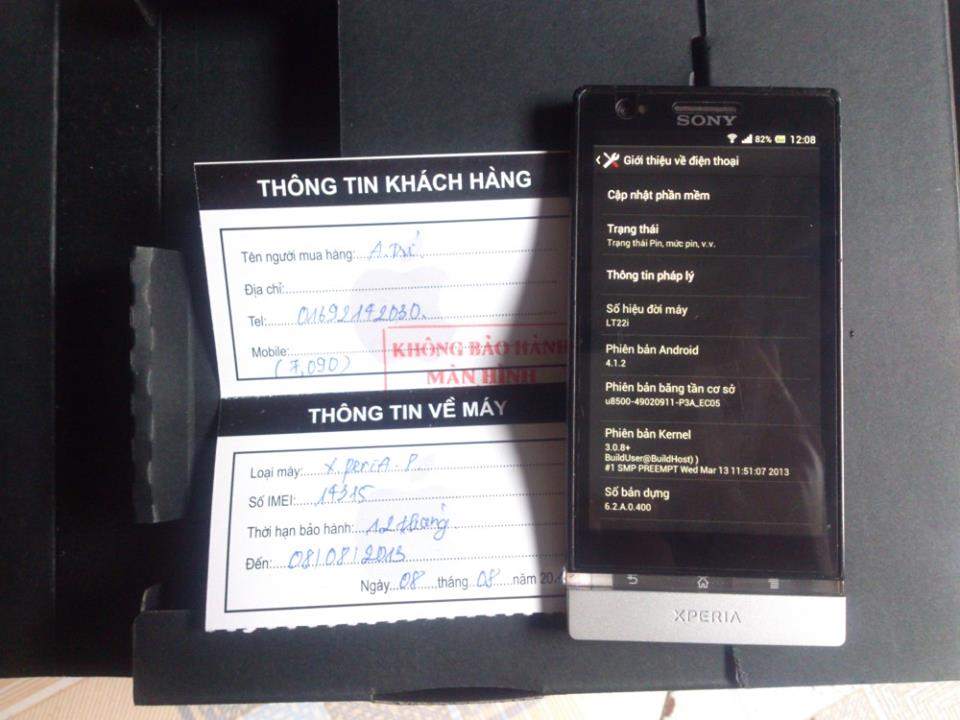 THÔNG TIN KHÁCH HÀNG
Tên người mua hàng: A.Trí
Địa chỉ:
Tel: 01692142030.
Mobile:
(7,090)
KHÔNG BẢO HÀNH
MÀN HÌNH
THÔNG TIN VỀ MÁY
Loại máy: XperiA.P.
Số IMEI: 14315
Thời hạn bảo hành: 12 tháng
Đến: 08/08/2013
Ngày 08 tháng 08 năm 20
SONY
82% 12:08
Giới thiệu về điện thoại
Cập nhật phần mềm
Trạng thái
Trạng thái Pin, mức pin, v.v.
Thông tin pháp lý
Số hiệu đời máy
LT22i
Phiên bản Android
4.1.2
Phiên bản băng tần cơ sở
u8500-49020911-P3A_EC05
Phiên bản Kernel
3.0.8+
BuildUser@BuildHost) )
#1 SMP PREEMPT Wed Mar 13 11:51:07 2013
Số bản dựng
6.2.A.0.400
XPERIA